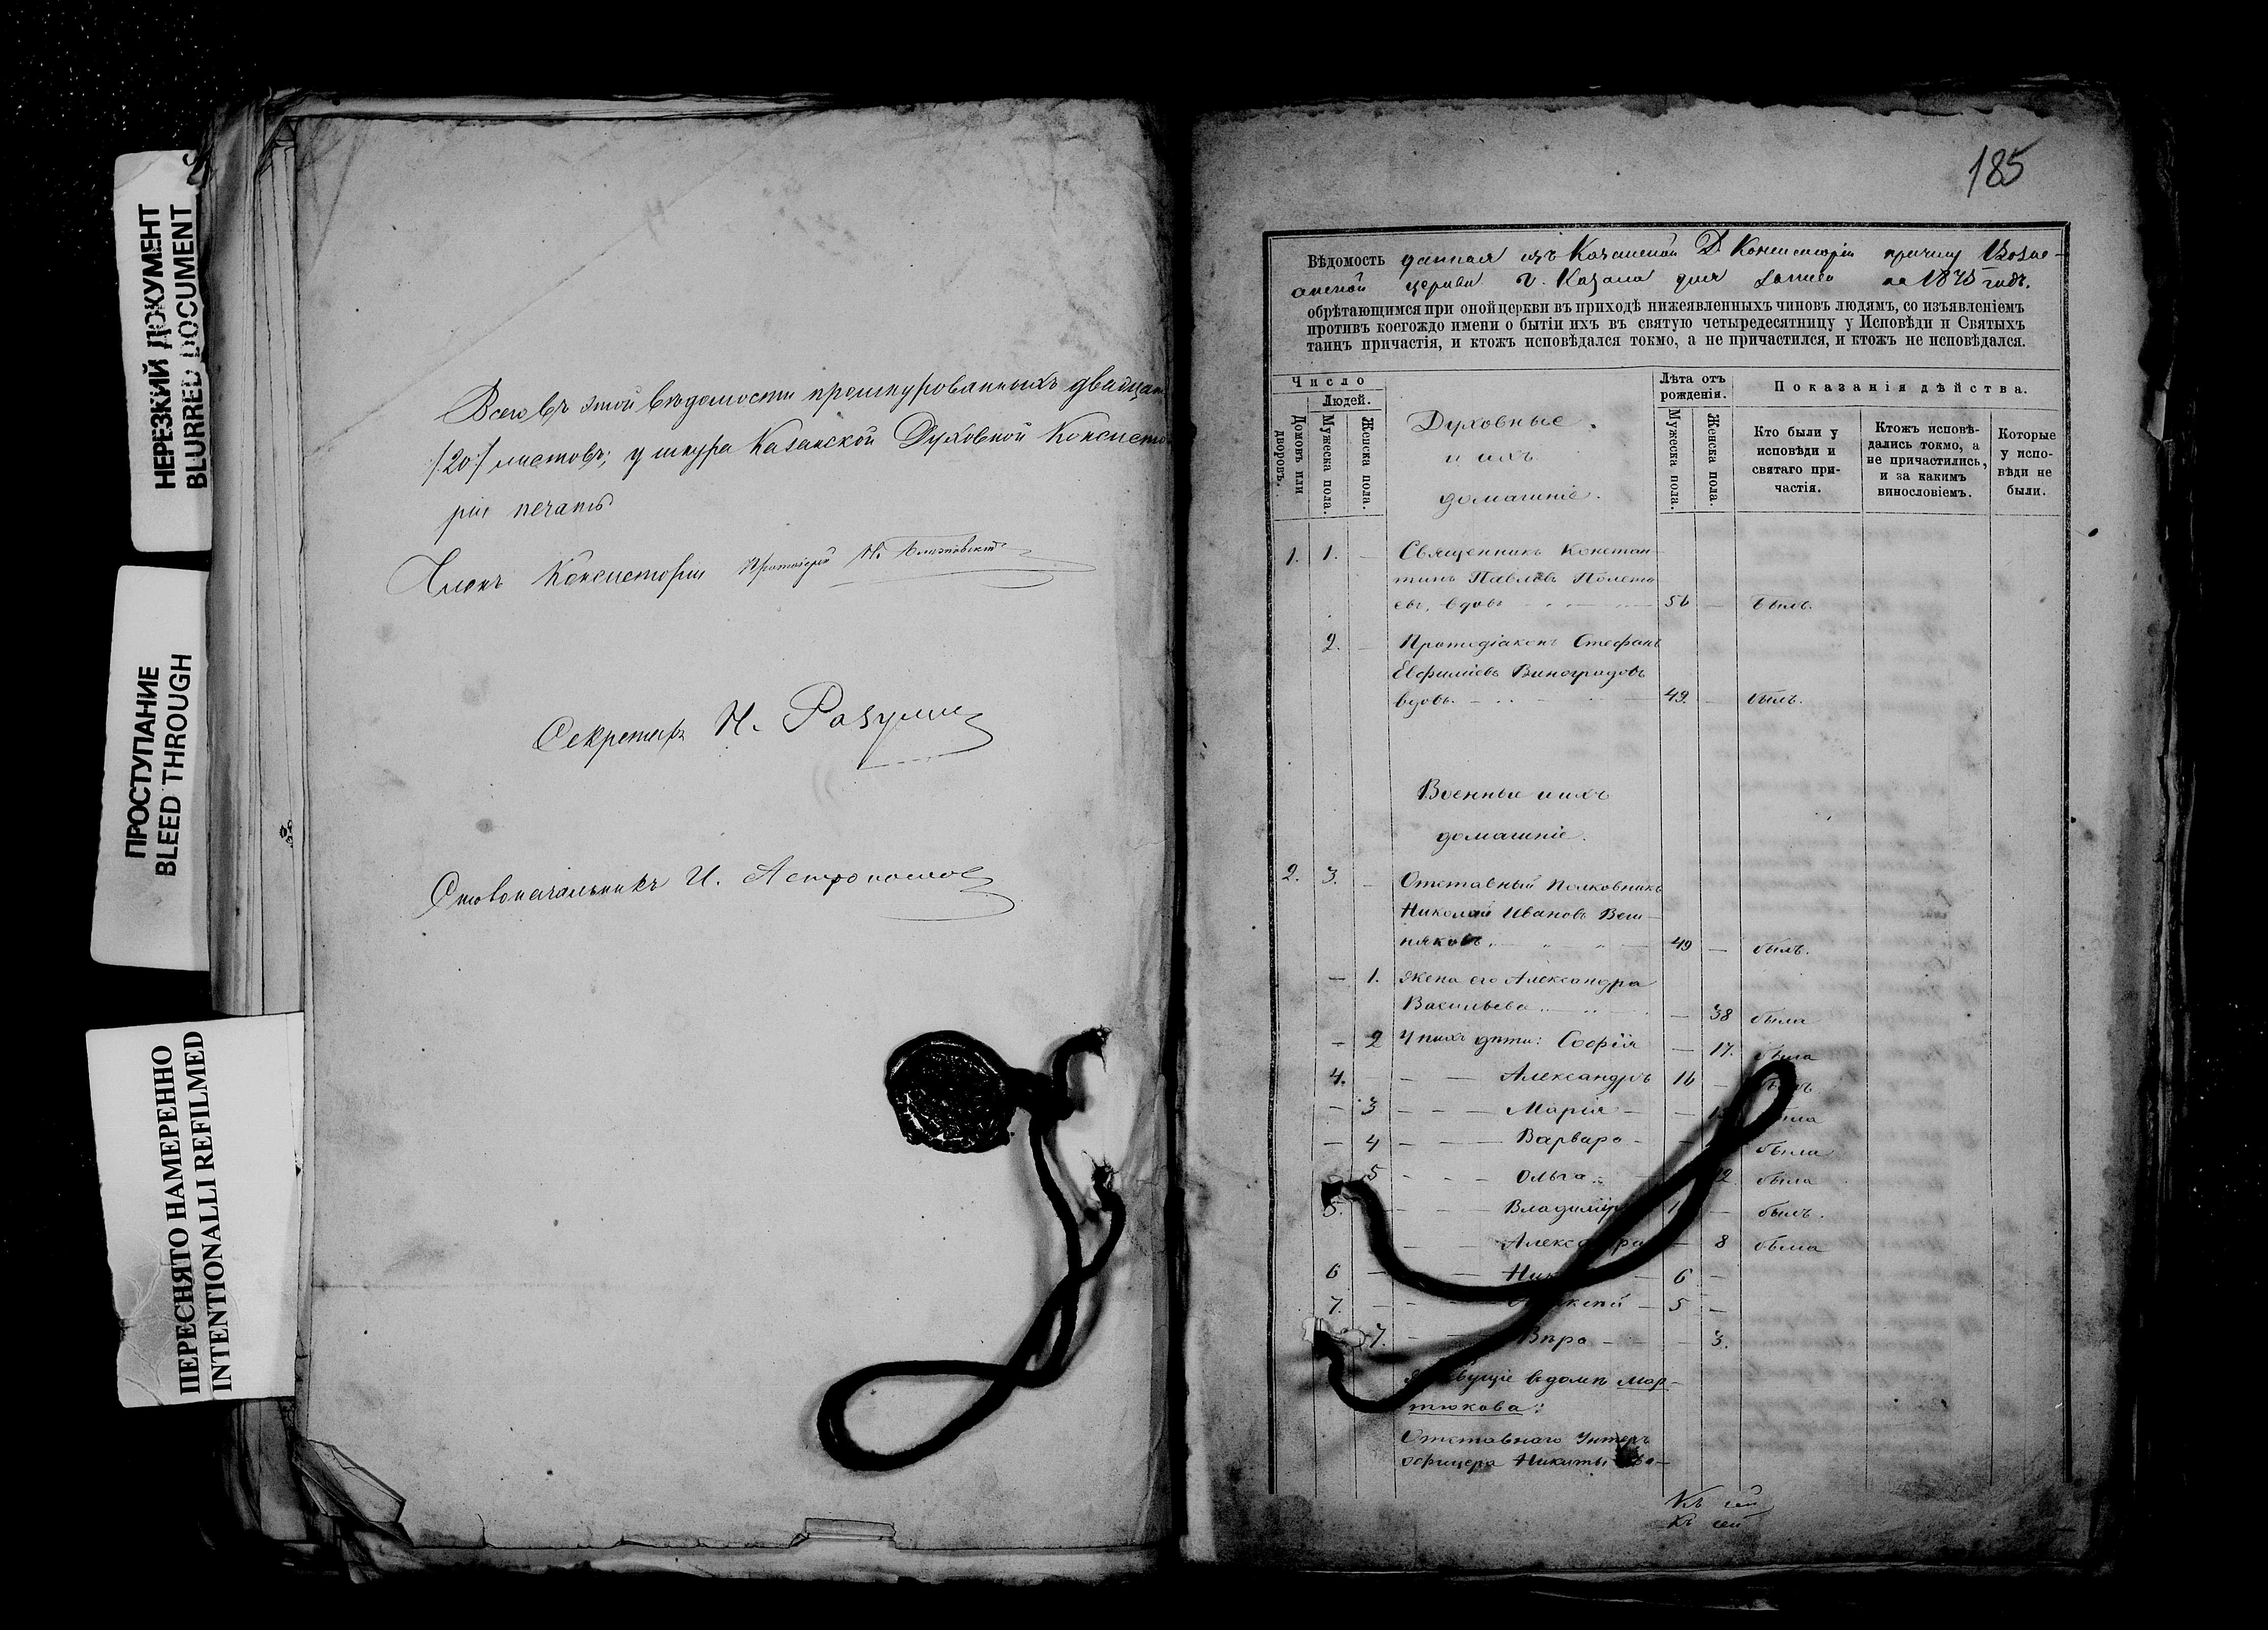 НЕРЕЗКИЙ ДОКУМЕНТ
BLURRED DOCUMENT
ПРОСТУПАНИЕ
BLEED THROUGH
ПЕРЕСНЯТО НАМЕРЕННО
INTENTIONALLI REFILMED
Всего въ этой ведомости прошнурованныхъ двадцать
/:20:/ листовъ; у шнура Казанской Духовной Консисто
ріи печать
Членъ Консисторіи Протоіерей
Секретарь Н.
Столоначальникъ И. Астрономов
185
Вѣдомость данная изъ Казанской Д. Консисторіи причту Вознес-
енской церкви г. Казани для записи на 1875 годъ.
обрѣтающимся при оной церкви въ приходѣ нижеявленныхъ чиновъ людямъ, со изъявленіемъ
противъ коегождо имени о бытіи ихъ въ святую четыредесятницу у Исповѣди и Святыхъ
таинъ причастія, и ктожъ исповѣдался токмо, а не причастился, и ктожъ не исповѣдался.
Число
Людей.
Домовъ или дворовъ.
Мужеска пола.
Женска пола.
Духовные
и ихъ
домашніе.
Лѣта отъ рожденія.
Мужеска пола.
Женска пола.
Показанія дѣйства.
Кто были у исповѣди и святаго при-частія.
Ктожъ исповѣ-дались токмо, а не причастились, и за какимъ винословіемъ.
Которые у испо-вѣди не были.
1. 1. — Священникъ Констан-
тинъ Павловъ
евъ, вдовъ 56 — былъ.
2. — Протодіаконъ Стефанъ
Евфиміевъ Виноградовъ
вдовъ. 49. — былъ.
Военные и ихъ
домашніе.
2. 3. — Отставный Полковникъ
Николай Ивановъ Веш-
няковъ 49 — былъ.
— 1. Жена его Александра
Васильева — 38 была
— 2 У нихъ дѣти: Софія — 17. была
4. — Александръ 16 —
— 3 Марія —
— 4 Варвара — была
5 Ольга была
5. Владиміръ — былъ.
Александра — 8 была
6 — 6 —
7. — 5 —
7. Вѣра — 3.
въ домѣ Мар-
тюкова:
Отставнаго Унтеръ
офицера Никиты